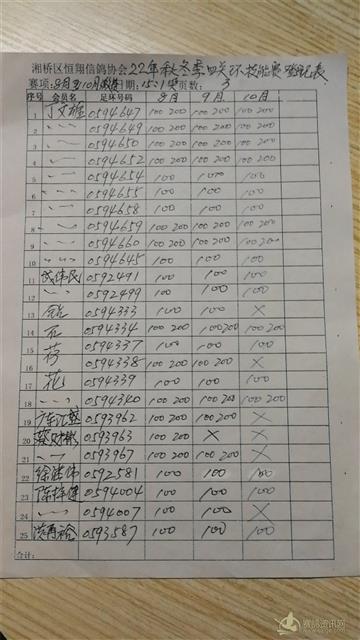 湘桥区恒翔信鸽协会22年秋冬季四关环技能赛登记表
赛项:8月至10月 日期:15:1 页数:3
序号 会员名 足环号码 8月 9月 10月
1 丁文雄 0594647 100 200 100 200 100 200
2 〃 0594649 100 200 100 200 100 200
3 〃 0594650 100 200 100 200 100 200
4 〃 0594652 100 200 100 200 100 200
5 〃 0594654 100 100 100
6 〃 0594655 100 100 100
7 〃 0594658 100 100 100
8 〃 0594659 100 200 100 200 100 200
9 〃 0594660 100 200 100 200 100 200
10 〃 0594645 100 100 100
11 伟民 0592491 100 100 100
12 〃 0592499 100 100 100
13 0594333 100 100 X
14 石 0594334 100 200 100 200 100 200
15 荷 0594337 100 100 100
16 0594338 100 200 100 200 X
17 花 0594339 100 100 100
18 〃 0594340 100 200 100 200 100 200
19 0593962 100 200 100 200 X
20 蔡 彬 0593963 100 200 X X
21 〃 0593967 100 200 100 200 X
22 徐 伟 0592581 100 100 100
23 陈 健 0594004 100 100 100
24 〃 0594007 100 100 X
25 洪再裕 0593587 100 100 100
合计:
赛鸽资讯网